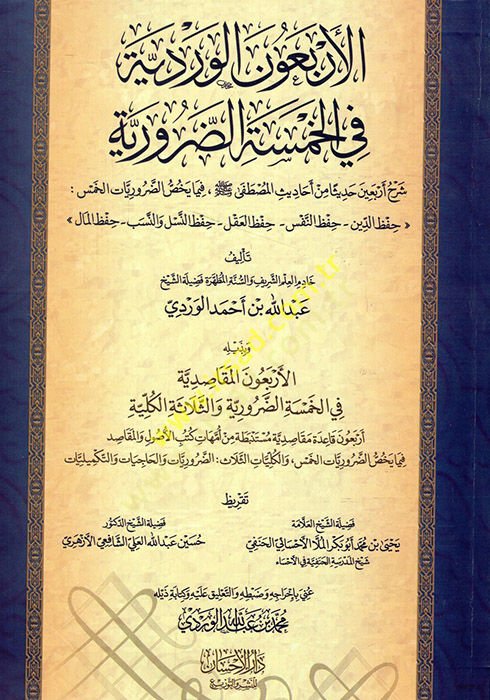 الأربعون الورديّة
في الخمسة الضّروريّة
شرح أربعين حديثا من أحاديث المصطفى ﷺ ، فيما يخصّ الضّروريّات الخمس :
« حفظ الدّين - حفظ النّفس - حفظ العقل - حفظ النّسل والنّسب - حفظ المال »
تأليف
خادم العلم الشّريف والسّنّة المطهّرة فضيلة الشّيخ
عبد الله بن أحمد الورديّ
وبذيله
الأربعون المقاصديّة
في الخمسة الضّروريّة والثّلاثة الكلّيّة
أربعون قاعدة مقاصديّة مستنبطة من أمّهات كتب الأصول والمقاصد
فيما يخصّ الضّروريّات الخمس، والكلّيّات الثّلاث: الضّروريّات والحاجيّات والتّكميليّات
تقريظ
فضيلة الشّيخ العلّامة
يحيى بن محمّد أبو بكر الملّا الأحسائيّ الحنفيّ
شيخ المدرسة الحنفيّة في الأحساء
فضيلة الشّيخ الدّكتور
حسين عبد الله العليّ الشّافعيّ الأزهريّ
عني بإخراجه وضبطه والتّعليق عليه وكتابة ذيله
محمّد بن عبد الله الورديّ
دار الإحسان
للنشر والتوزيع